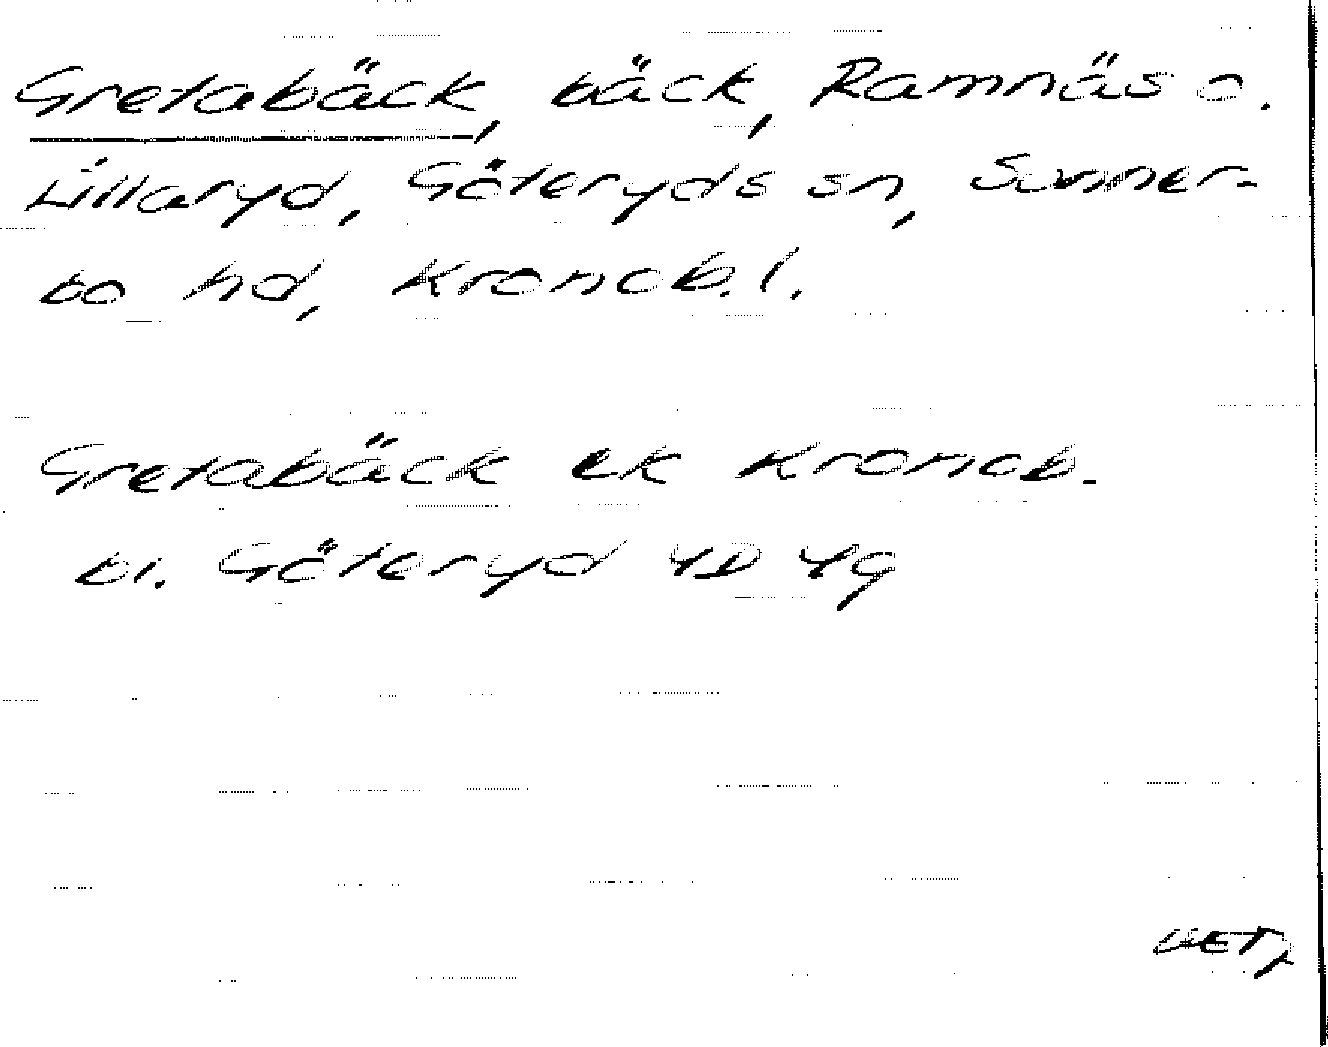 Gretabäck, bäck, Ramnäs o.
Lillaryd, Göteryds sn, Sunner-
bo hd, Kronob. l.
Gretabäck ek Kronob.
bl. Göteryd 4D 4g